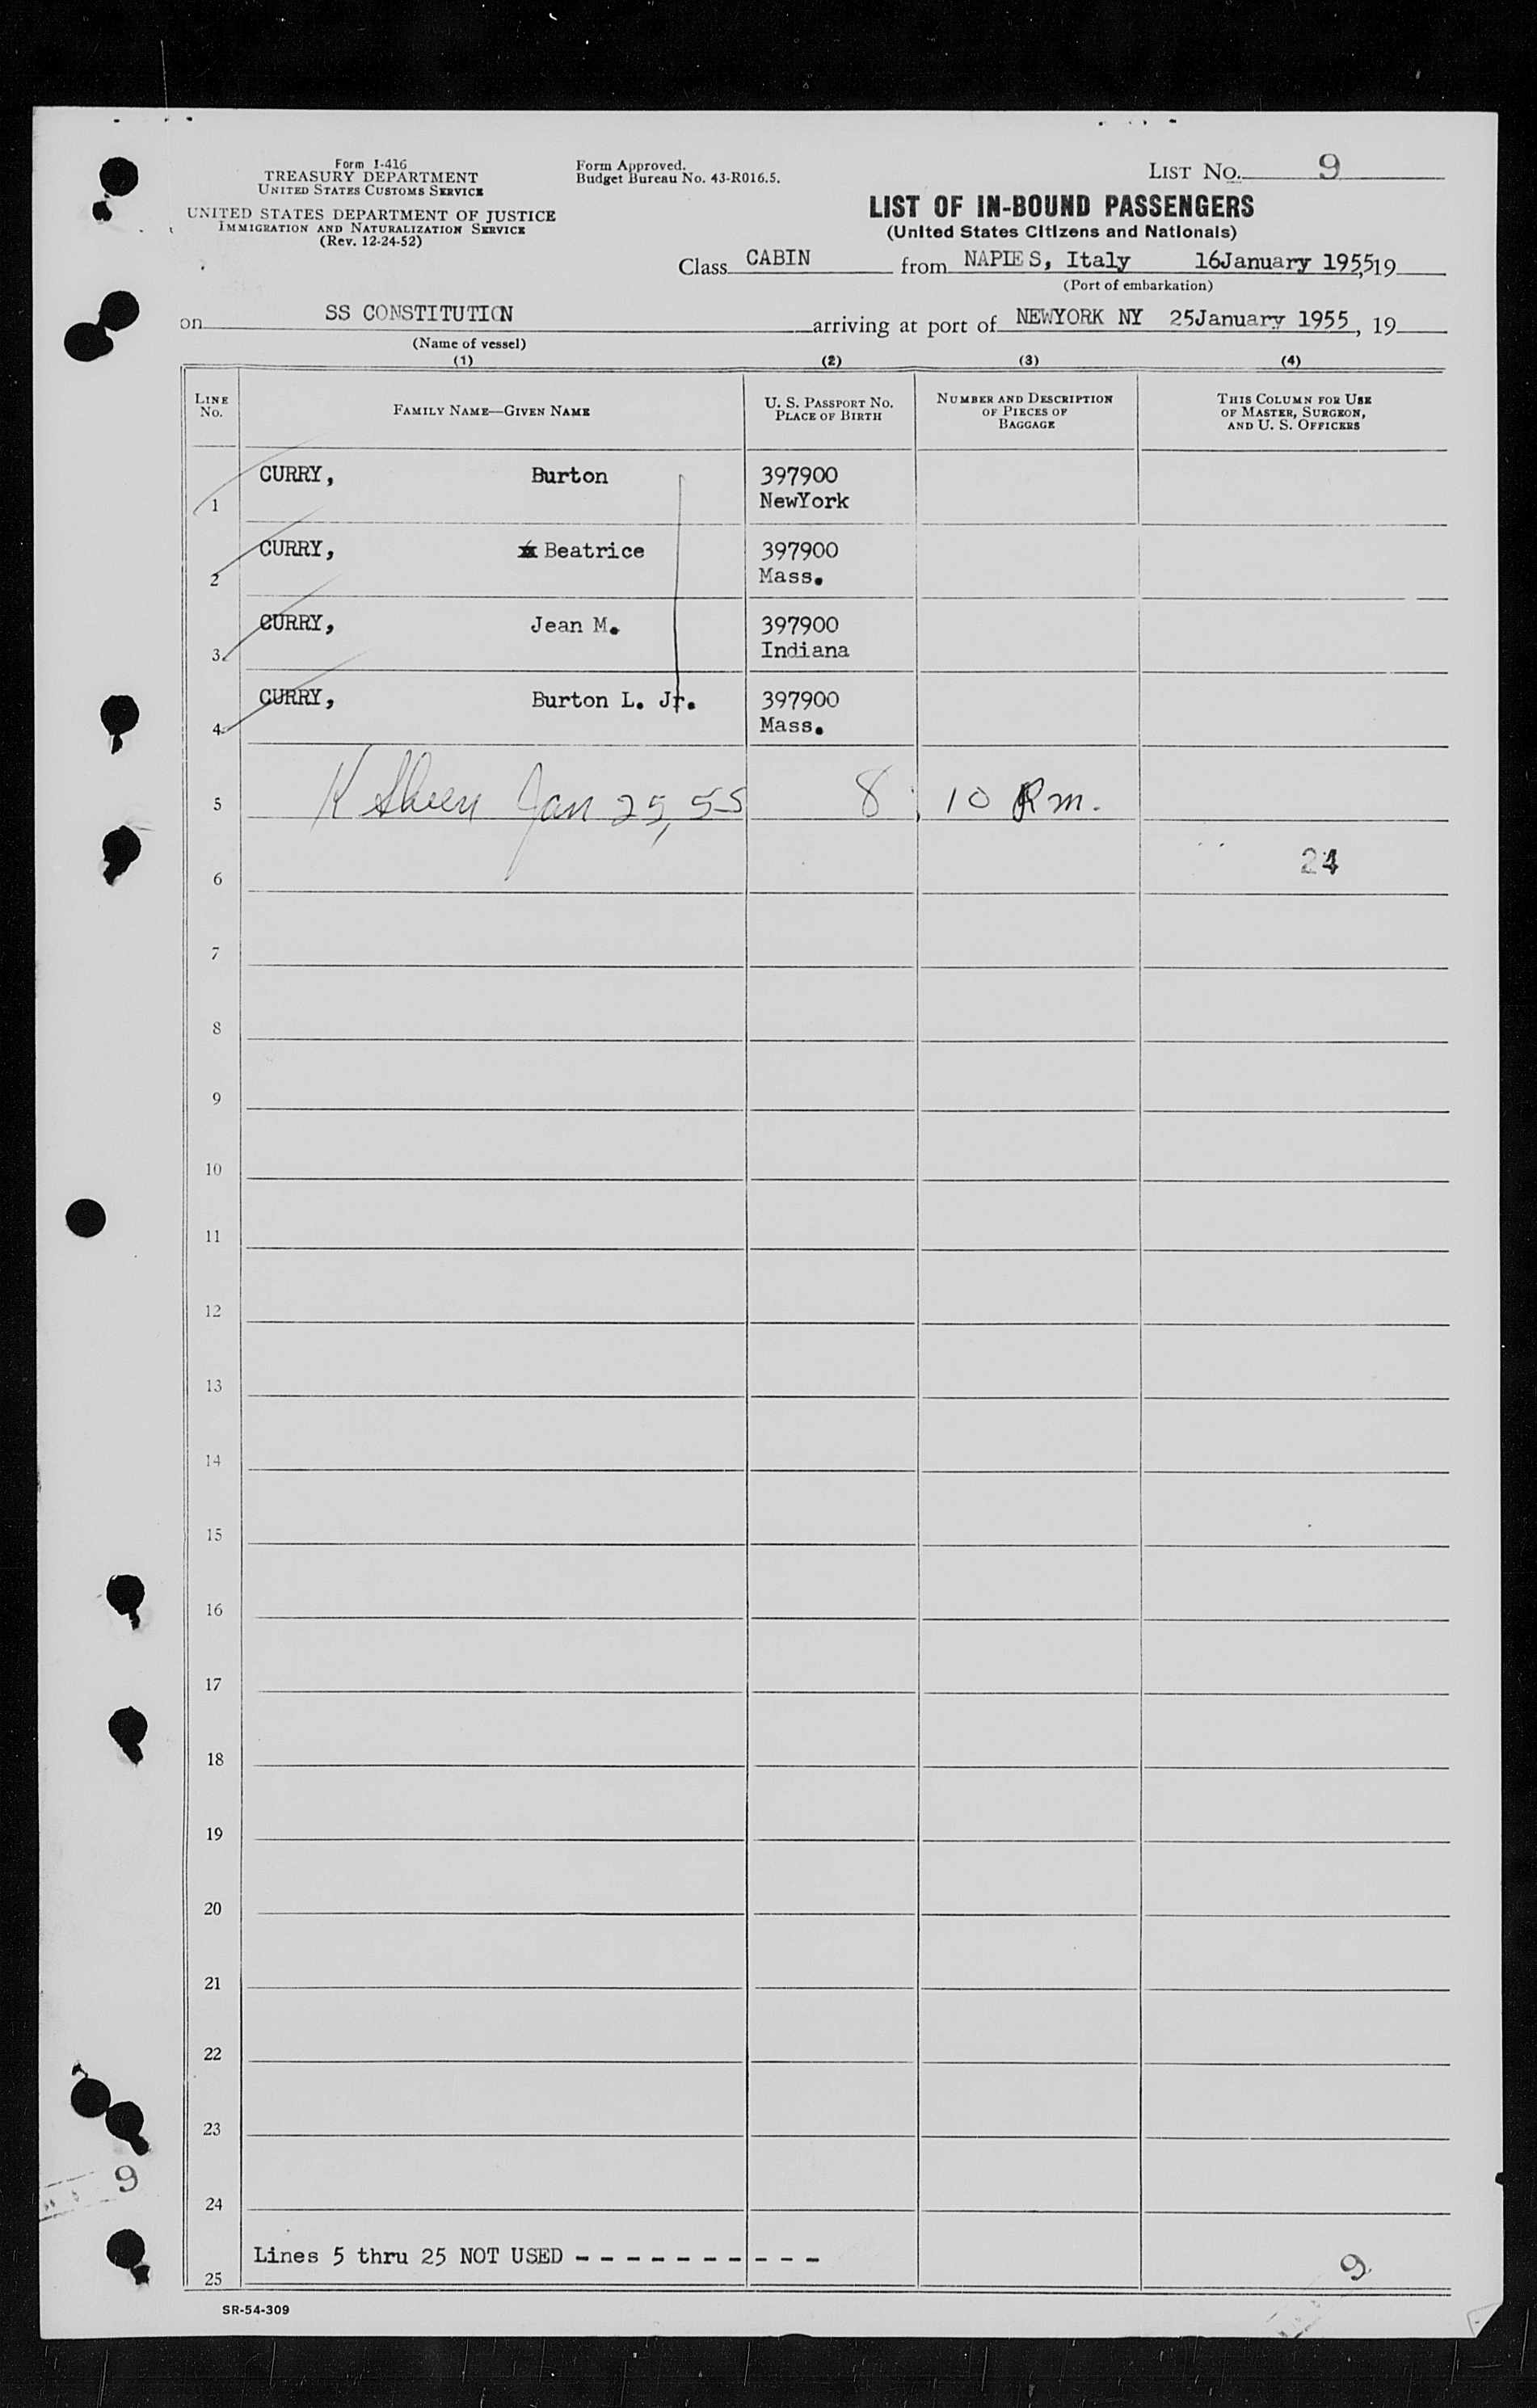 Form I-416
TREASURY DEPARTMENT
UNITED STATES CUSTOMS SERVICE
UNITED STATES DEPARTMENT OF JUSTICE
IMMIGRATION AND NATURALIZATION SERVICE
(Rev. 12-24-52)
Form Approved.
Budget Bureau No. 43-R016.5.
LIST No. 9
LIST OF IN-BOUND PASSENGERS
(United States Citizens and Nationals)
Class CABIN from NAPLES, Italy 16January 1955, 19
(Port of embarkation)
on SS CONSTITUTION arriving at port of NEWYORK NY 25January 1955, 19
(Name of vessel)
(1) (2) (3) (4)
LINE No. FAMILY NAME—GIVEN NAME U. S. PASSPORT No. PLACE OF BIRTH NUMBER AND DESCRIPTION OF PIECES OF BAGGAGE THIS COLUMN FOR USE OF MASTER, SURGEON, AND U. S. OFFICERS
1 CURRY, Burton 397900 NewYork
2 CURRY, Beatrice 397900 Mass.
3 CURRY, Jean M. 397900 Indiana
4 CURRY, Burton L. Jr. 397900 Mass.
5 Jan 25, 55 8 10 Rm.
6 24
7
8
9
10
11
12
13
14
15
16
17
18
19
20
21
22
23
9
24
25 Lines 5 thru 25 NOT USED - - - - - - - - - - 9
SR-54-309